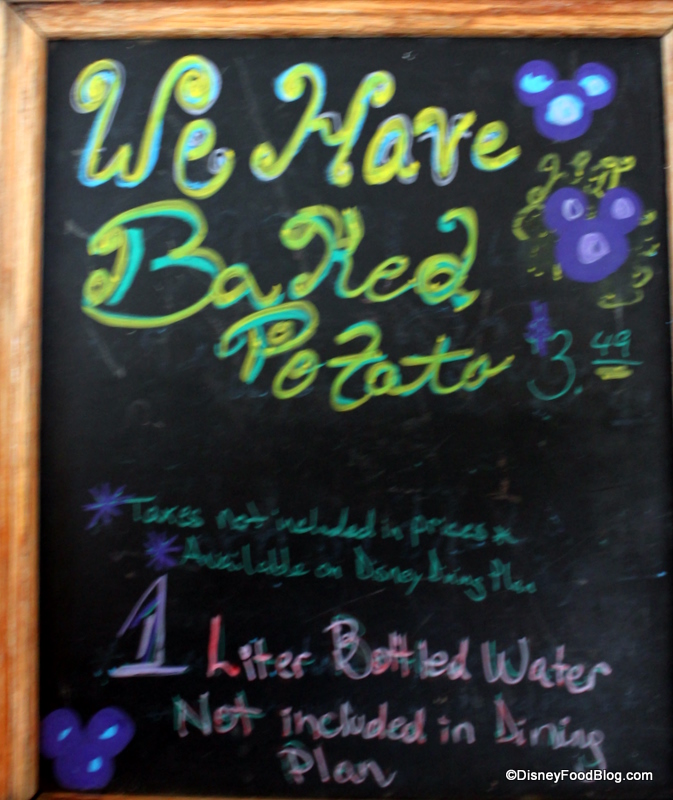 We Have
Baked
Potato 3.49
*Taxes not included in prices*
*Available on Disney Dining Plan
1 Liter Bottled Water
Not included in Dining
Plan
©DisneyFoodBlog.com